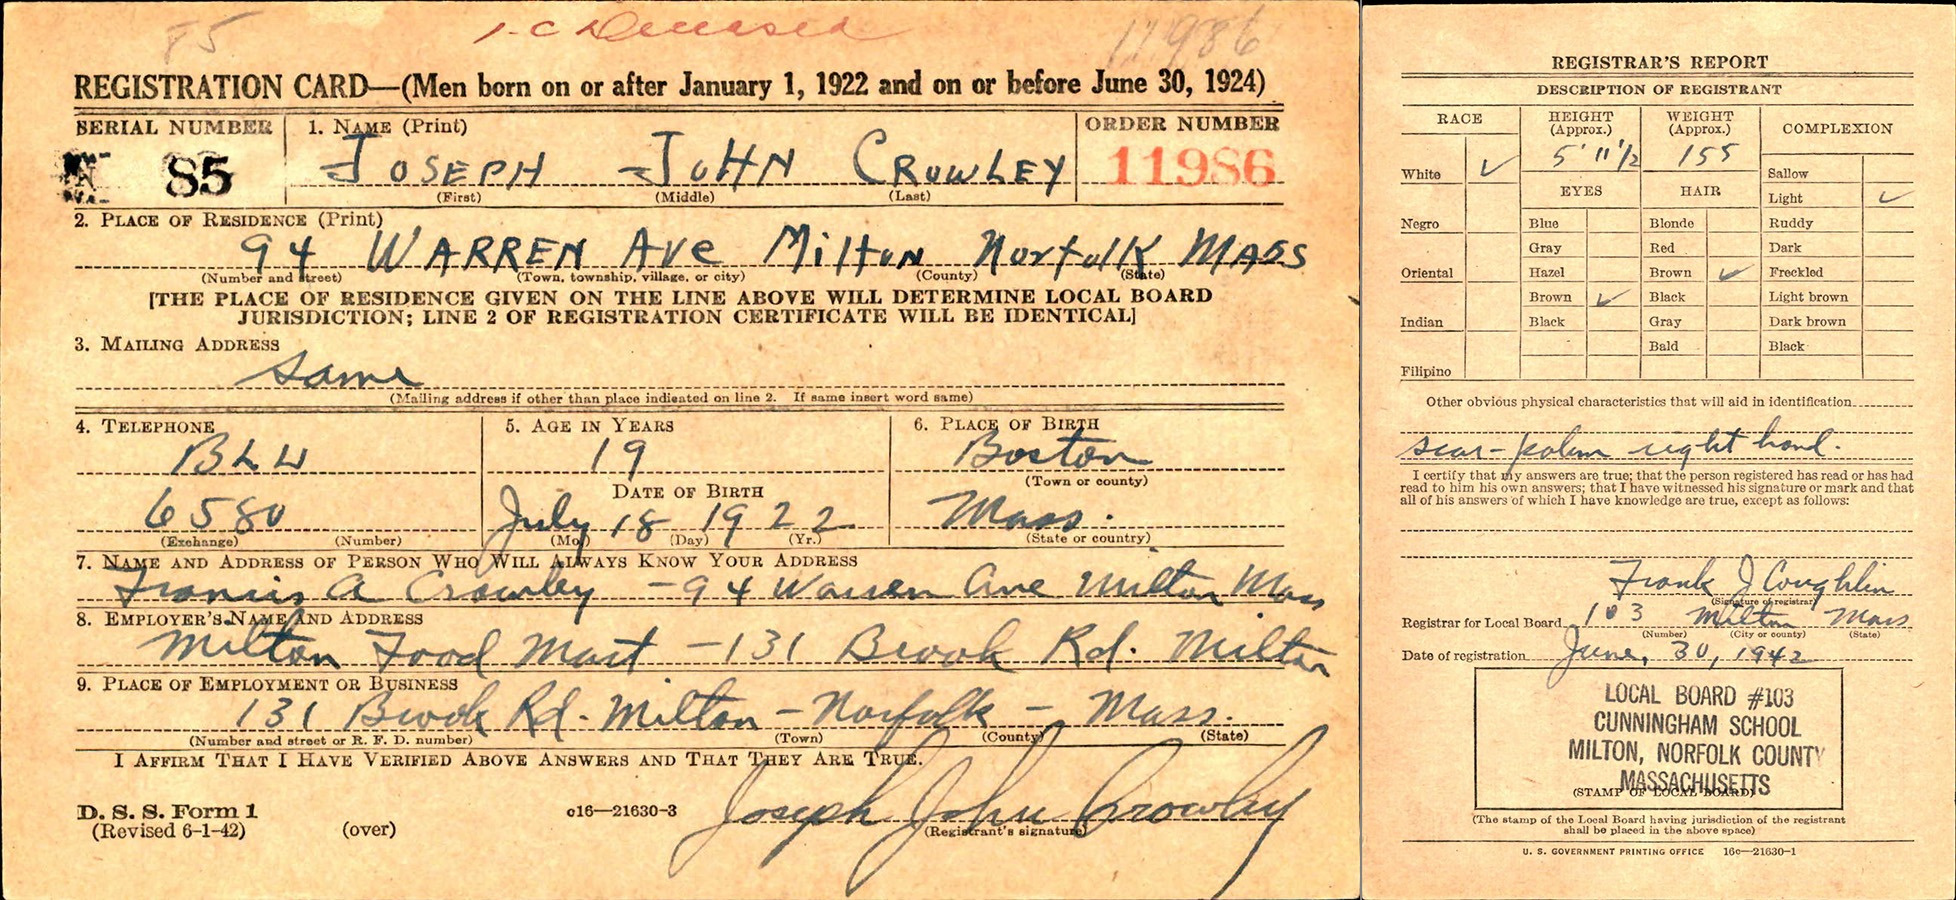 F5
1-C Deceased
11986
REGISTRATION CARD—(Men born on or after January 1, 1922 and on or before June 30, 1924)
SERIAL NUMBER
N 85
1. NAME (Print)
JOSEPH JOHN CROWLEY
(First) (Middle) (Last)
ORDER NUMBER
11986
2. PLACE OF RESIDENCE (Print)
94 WARREN AVE Milton Norfolk MASS
(Number and street) (Town, township, village, or city) (County) (State)
[THE PLACE OF RESIDENCE GIVEN ON THE LINE ABOVE WILL DETERMINE LOCAL BOARD
JURISDICTION; LINE 2 OF REGISTRATION CERTIFICATE WILL BE IDENTICAL]
3. MAILING ADDRESS
Same
(Mailing address if other than place indicated on line 2. If same insert word same)
4. TELEPHONE
BLU
6580
(Exchange) (Number)
5. AGE IN YEARS
19
DATE OF BIRTH
July 18 1922
(Mo.) (Day) (Yr.)
6. PLACE OF BIRTH
Boston
(Town or county)
Mass.
(State or country)
7. NAME AND ADDRESS OF PERSON WHO WILL ALWAYS KNOW YOUR ADDRESS
Francis A Crowley - 94 Warren Ave Milton Mass
8. EMPLOYER'S NAME AND ADDRESS
Milton Food Mart - 131 Brook Rd. Milton
9. PLACE OF EMPLOYMENT OR BUSINESS
131 Brook Rd. Milton - Norfolk - Mass.
(Number and street or R. F. D. number) (Town) (County) (State)
I AFFIRM THAT I HAVE VERIFIED ABOVE ANSWERS AND THAT THEY ARE TRUE.
D. S. S. Form 1
(Revised 6-1-42) (over)
c16—21630-3
Joseph John Crowley
(Registrant's signature)
REGISTRAR'S REPORT
DESCRIPTION OF REGISTRANT
RACE
White ✓
Negro
Oriental
Indian
Filipino
HEIGHT
(Approx.)
5' 11 1/2
WEIGHT
(Approx.)
155
EYES
Blue
Gray
Hazel
Brown ✓
Black
HAIR
Blonde
Red
Brown ✓
Black
Gray
Bald
COMPLEXION
Sallow
Light ✓
Ruddy
Dark
Freckled
Light brown
Dark brown
Black
Other obvious physical characteristics that will aid in identification
scar - palm right hand.
I certify that my answers are true; that the person registered has read or has had
read to him his own answers; that I have witnessed his signature or mark and that
all of his answers of which I have knowledge are true, except as follows:
Frank J Coughlin
(Signature of registrar)
Registrar for Local Board 103 Milton Mass
(Number) (City or county) (State)
Date of registration June, 30, 1942
LOCAL BOARD #103
CUNNINGHAM SCHOOL
MILTON, NORFOLK COUNTY
MASSACHUSETTS
(STAMP OF LOCAL BOARD)
(The stamp of the Local Board having jurisdiction of the registrant
shall be placed in the above space)
U. S. GOVERNMENT PRINTING OFFICE 16c—21630-1